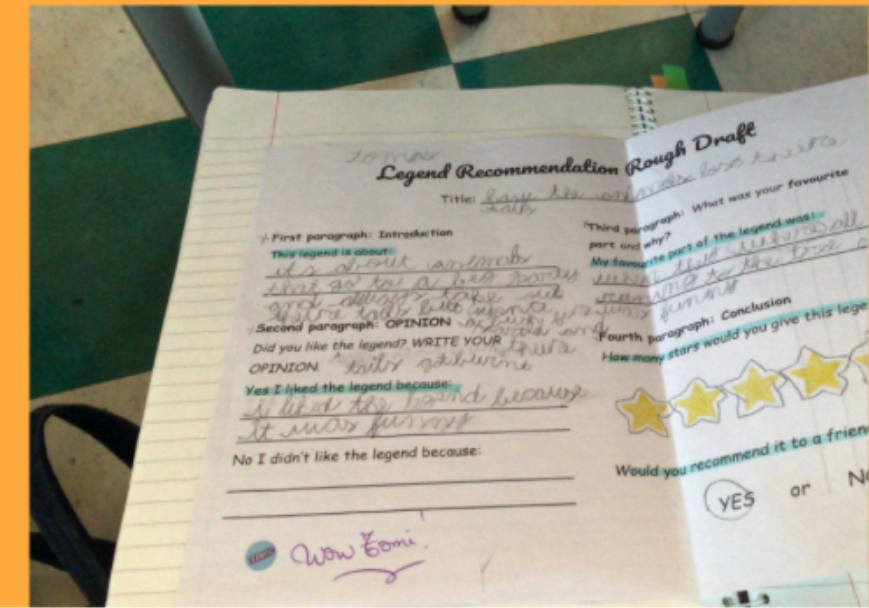 Tomas
Legend Recommendation Rough Draft
Title: how the animals lost theire
tails
First paragraph: Introduction
This legend is about:
it's about animals
that go to a big party
and always take out
theire tails but
Second paragraph: OPINION
Did you like the legend? WRITE YOUR
OPINION.
tails
Yes I liked the legend because:
i liked the legend because
it was funny
No I didn't like the legend because:
Wow Tomi.
Third paragraph: What was your favourite
part and why?
My favourite part of the legend was:
when they where all
running to the tree
was funny
Fourth paragraph: Conclusion
How many stars would you give this lege
Would you recommend it to a frien
YES or N